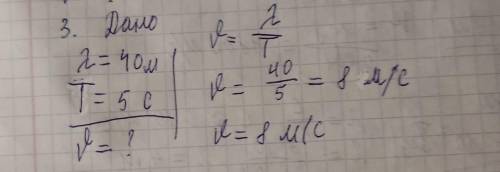 3. Дано
λ = 40м
T = 5 с
ϑ = ?
ϑ = λ/T
ϑ = 40/5 = 8 м/с
ϑ = 8 м/с